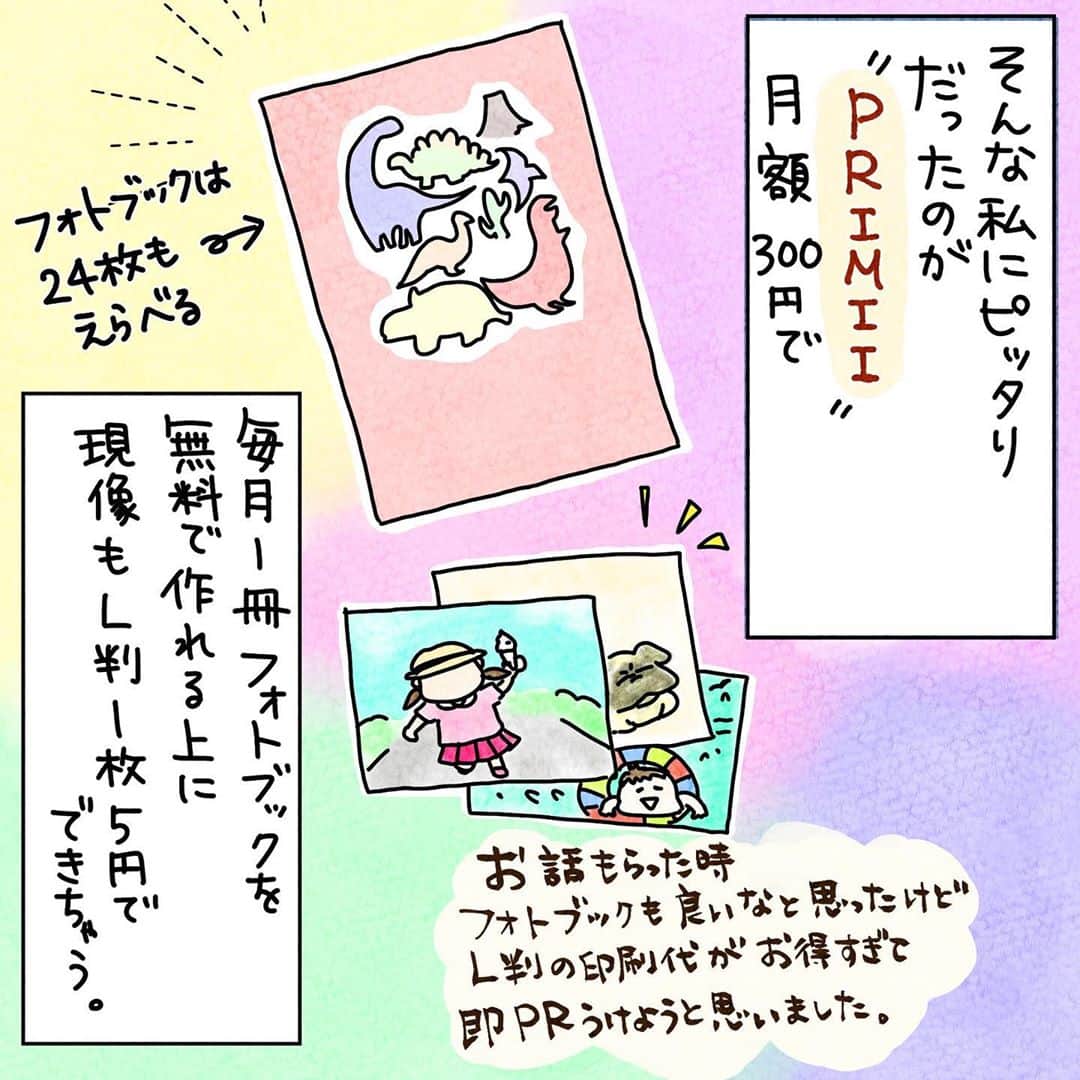 そんな私にピッタリ
だったのが
"PRIMII"
月額300円で
フォトブックは
24枚も
えらべる
毎月1冊フォトブックを
無料で作れる上に
現像もL判1枚5円で
できちゃう。
お話もらった時
フォトブックも良いなと思ったけど
L判の印刷代がお得すぎて
即PRうけようと思いました。